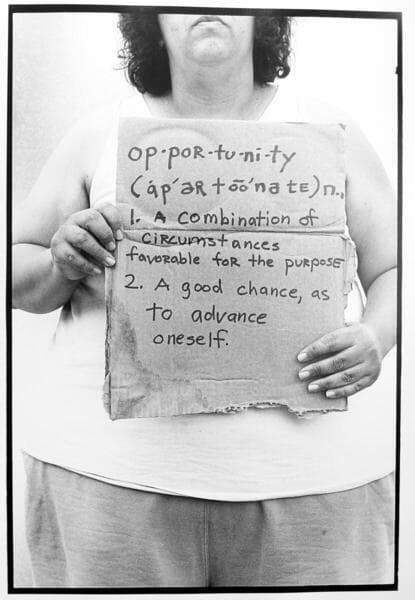 op·poR·tu·ni·ty
(áp´əR tōō´nə tE) n.,
1. A combination of
CiRCUMstances
favorable foR the puRposE
2. A good chance, as
to advance
oneself.